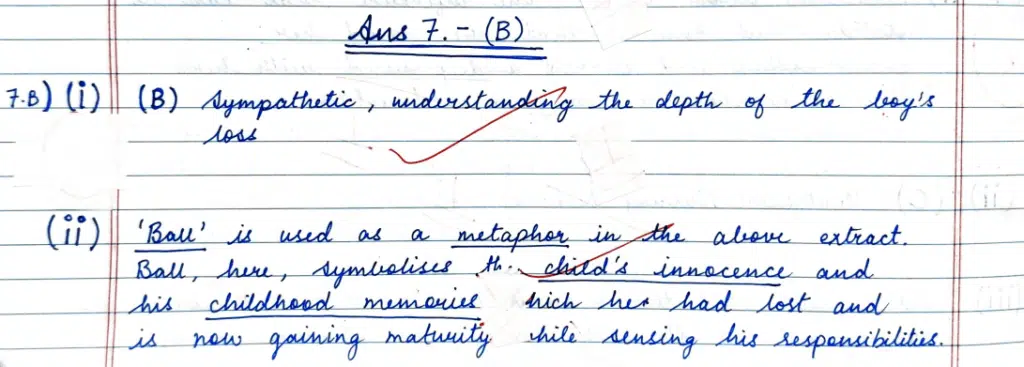 Ans 7. - (B)
7.B) (i) (B) Sympathetic, understanding the depth of the boy's
loss
(ii) 'Ball' is used as a metaphor in the above extract.
Ball, here, symbolises th child's innocence and
his childhood memories hich her had lost and
is now gaining maturity hile sensing his responsibilities.